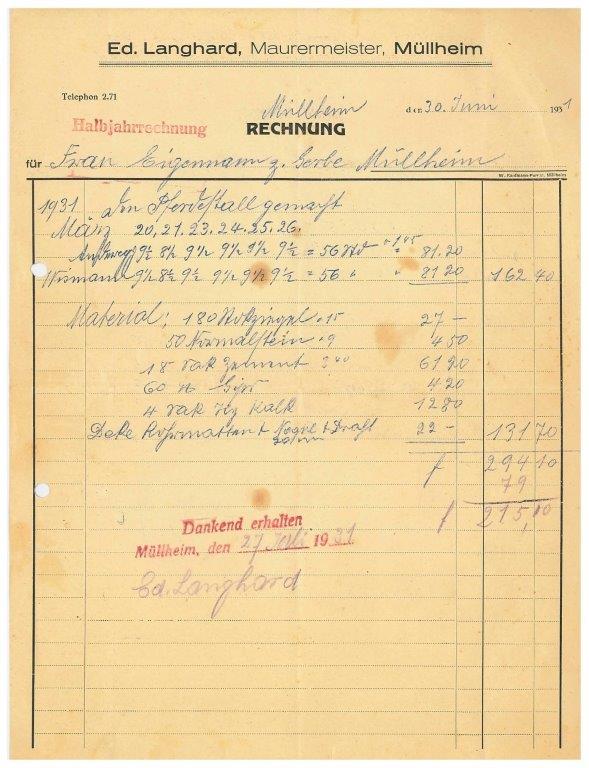 Ed. Langhard, Maurermeister, Müllheim
Telephon 2.71
Müllheim den 30. Juni 1931
Halbjahrrechnung
RECHNUNG
für Frau Eigenmann z. Gerbe Müllheim
1931 den Pferdestall gemacht
März 20, 21. 23. 24. 25. 26.
9½ 8½ 9½ 9½ 9½ 9½ = 56 Std " 1.45 = 81.20
9½ 8½ 9½ 9½ 9½ 9½ = 56 " " 81.20 162 40
Material: 180 " 15 27 —
50 Normalstein " 9 4 50
18 Sak Zement 3 40 61 20
60 Gips 4 20
4 Sak Kalk 12 80
Deke Rohrmatten + Nägel + Draht 22 — 131 70
f 294 10
79
f 215,10
Dankend erhalten
Müllheim, den 27 Juli 1931
Ed. Langhard